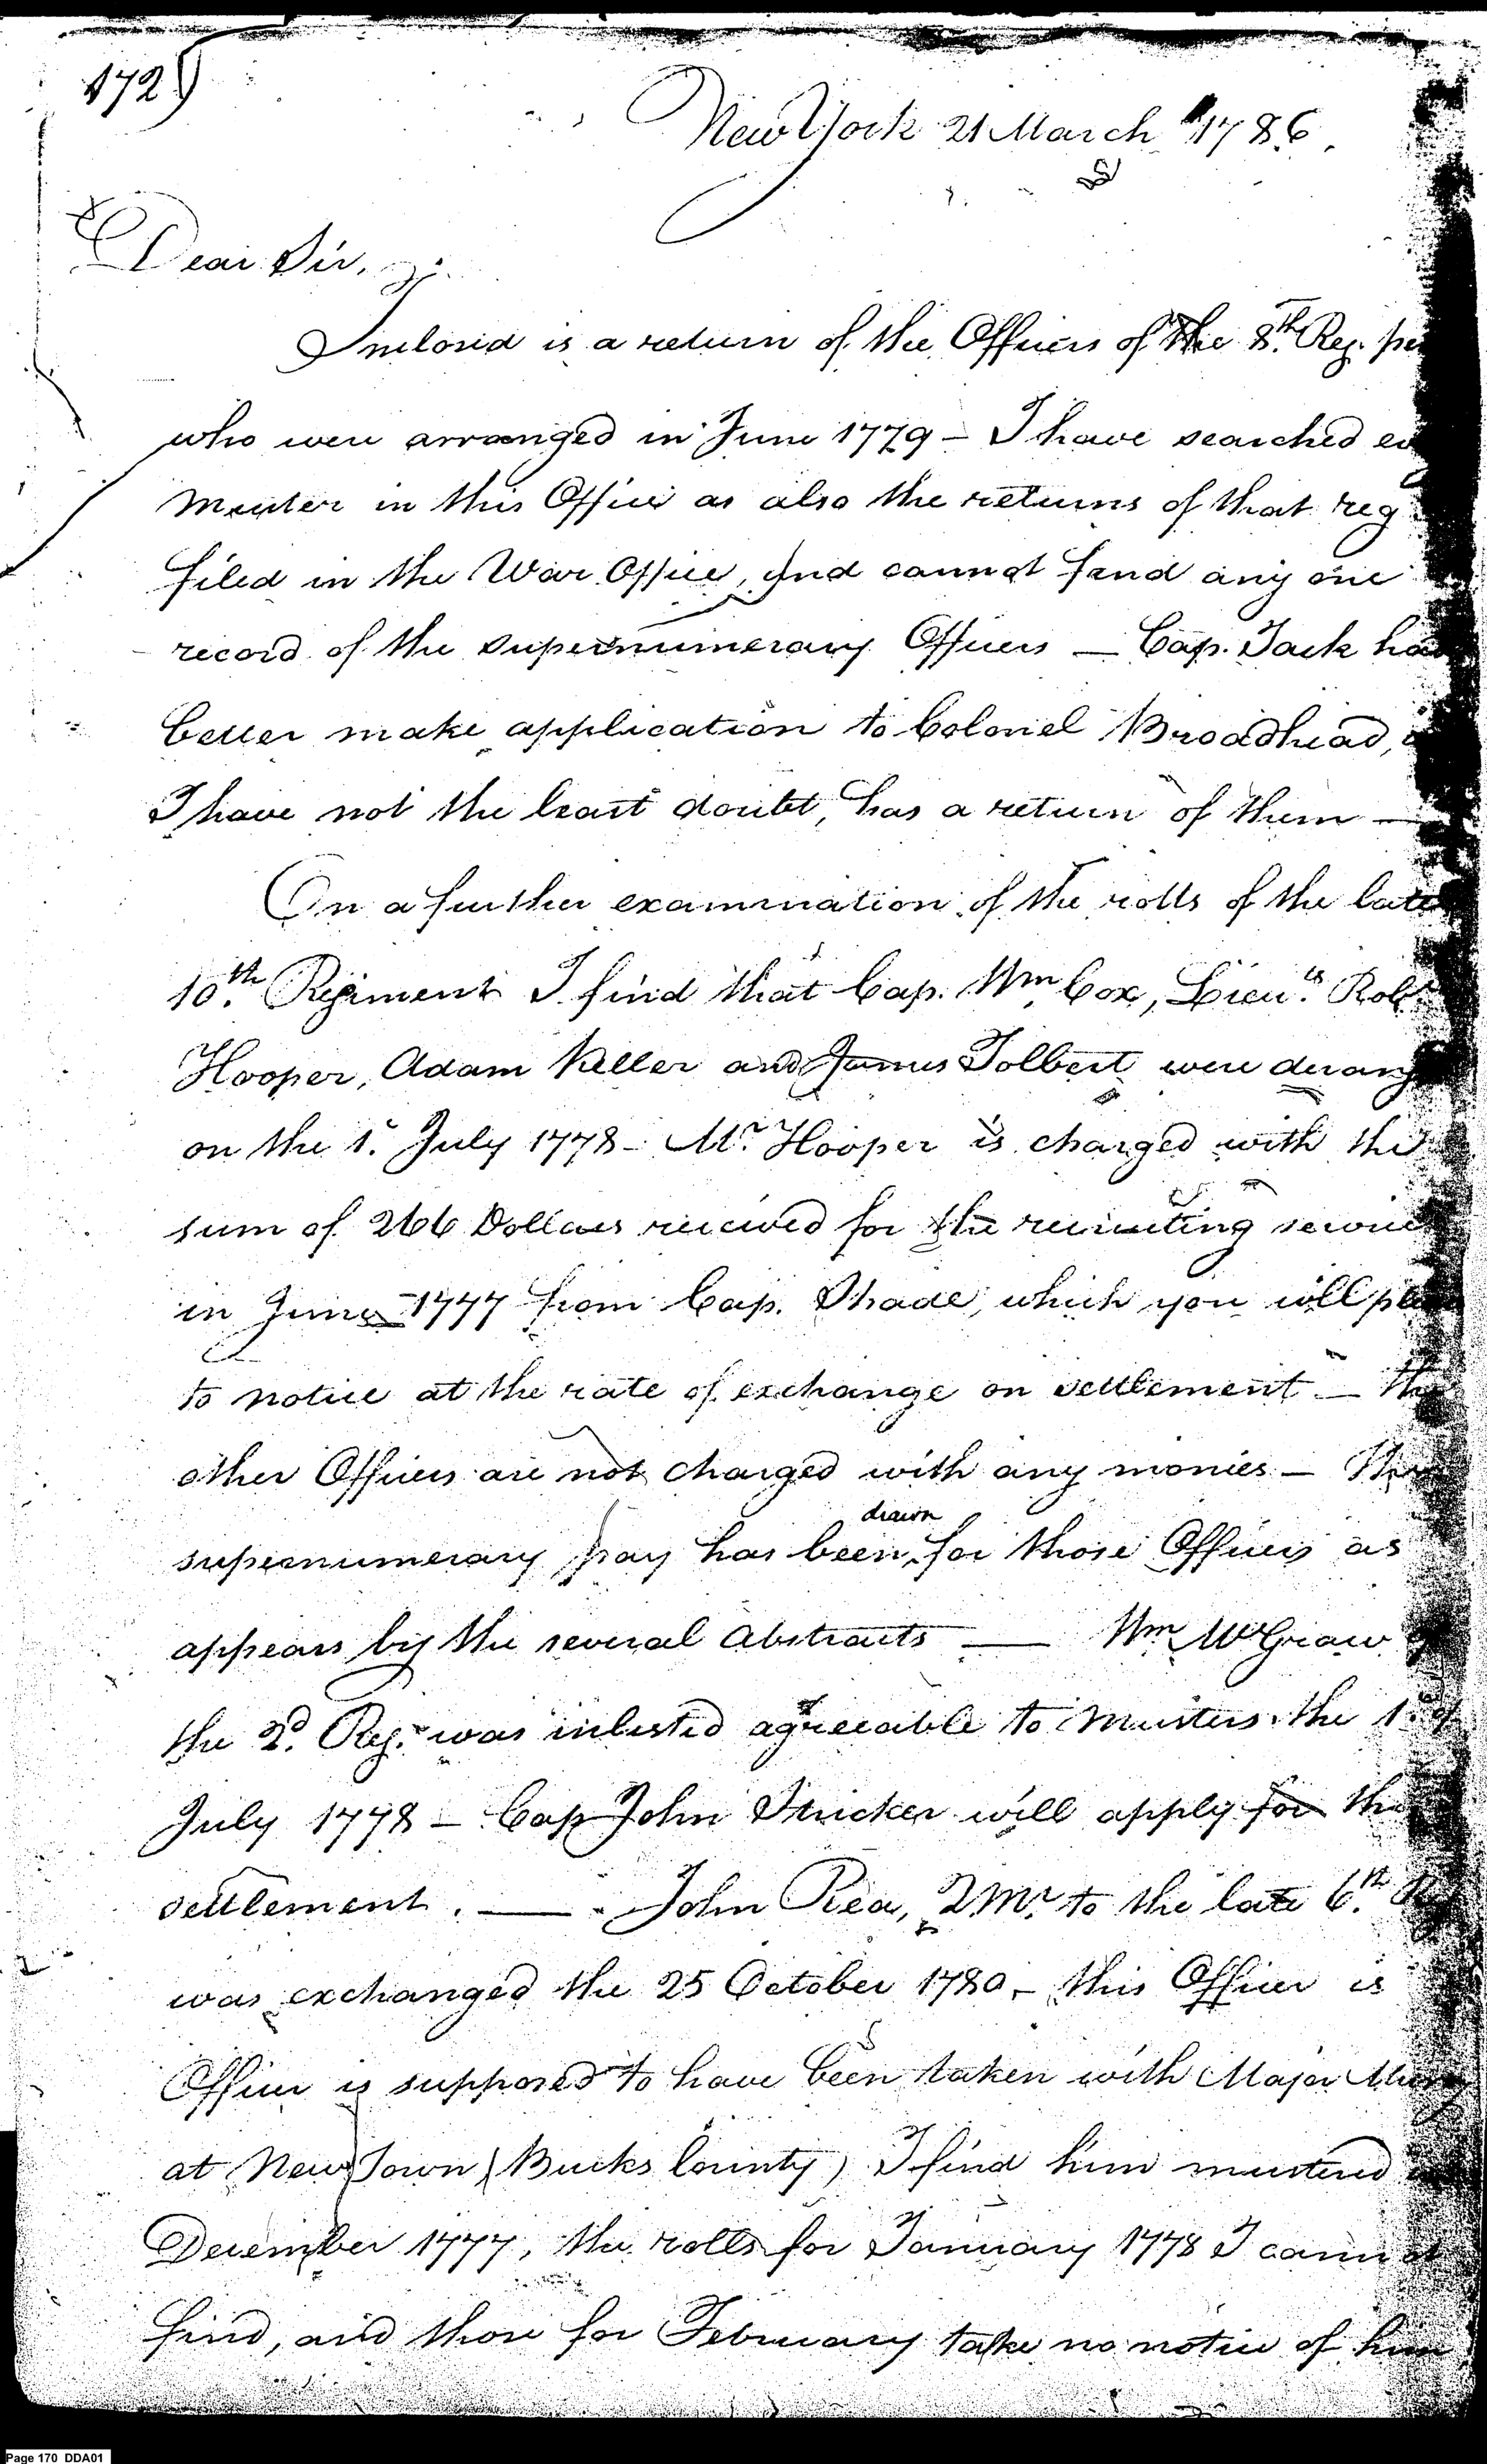 172)
New York 21 March 1786.
Dear Sir,
Inclosed is a return of the Officers of the 8th. Reg.
who were arranged in June 1779 – I have searched
Muster in this Office as also the returns of that reg
filed in the War Office, and cannot find any one
record of the supernumerary Officers — Cap. Jack had
better make application to Colonel Broadhead,
I have not the least doubt, has a return of them —
On a further examination of the rolls of the late
10th. Regiment I find that Cap. Wm Cox, Lieuts. Robt.
Hooper, Adam Keller and James Tolbert were derang
on the 1st. July 1778 – Mr. Hooper is charged with the
sum of 266 Dollars received for the recruiting service
in June 1777 from Cap. Shade, which you will
to notice at the rate of exchange on settlement – the
other Officers are not charged with any monies –
supernumerary pay has been drawn for those Officers as
appears by the several Abstracts — Wm McGraw of
the 2d. Reg. was inlisted agreeable to Musters the 1st. of
July 1778 – Cap John Stricker will apply for the
settlement. — John Rea, Q Mr. to the late 6th.
was exchanged the 25 October 1780 – this Officer is
Officer is supposed to have been taken with Major
at New Town (Bucks County) I find him mustered
December 1777, the rolls for January 1778 I cannot
find, and those for February take no notice of him
Page 170 DDA01